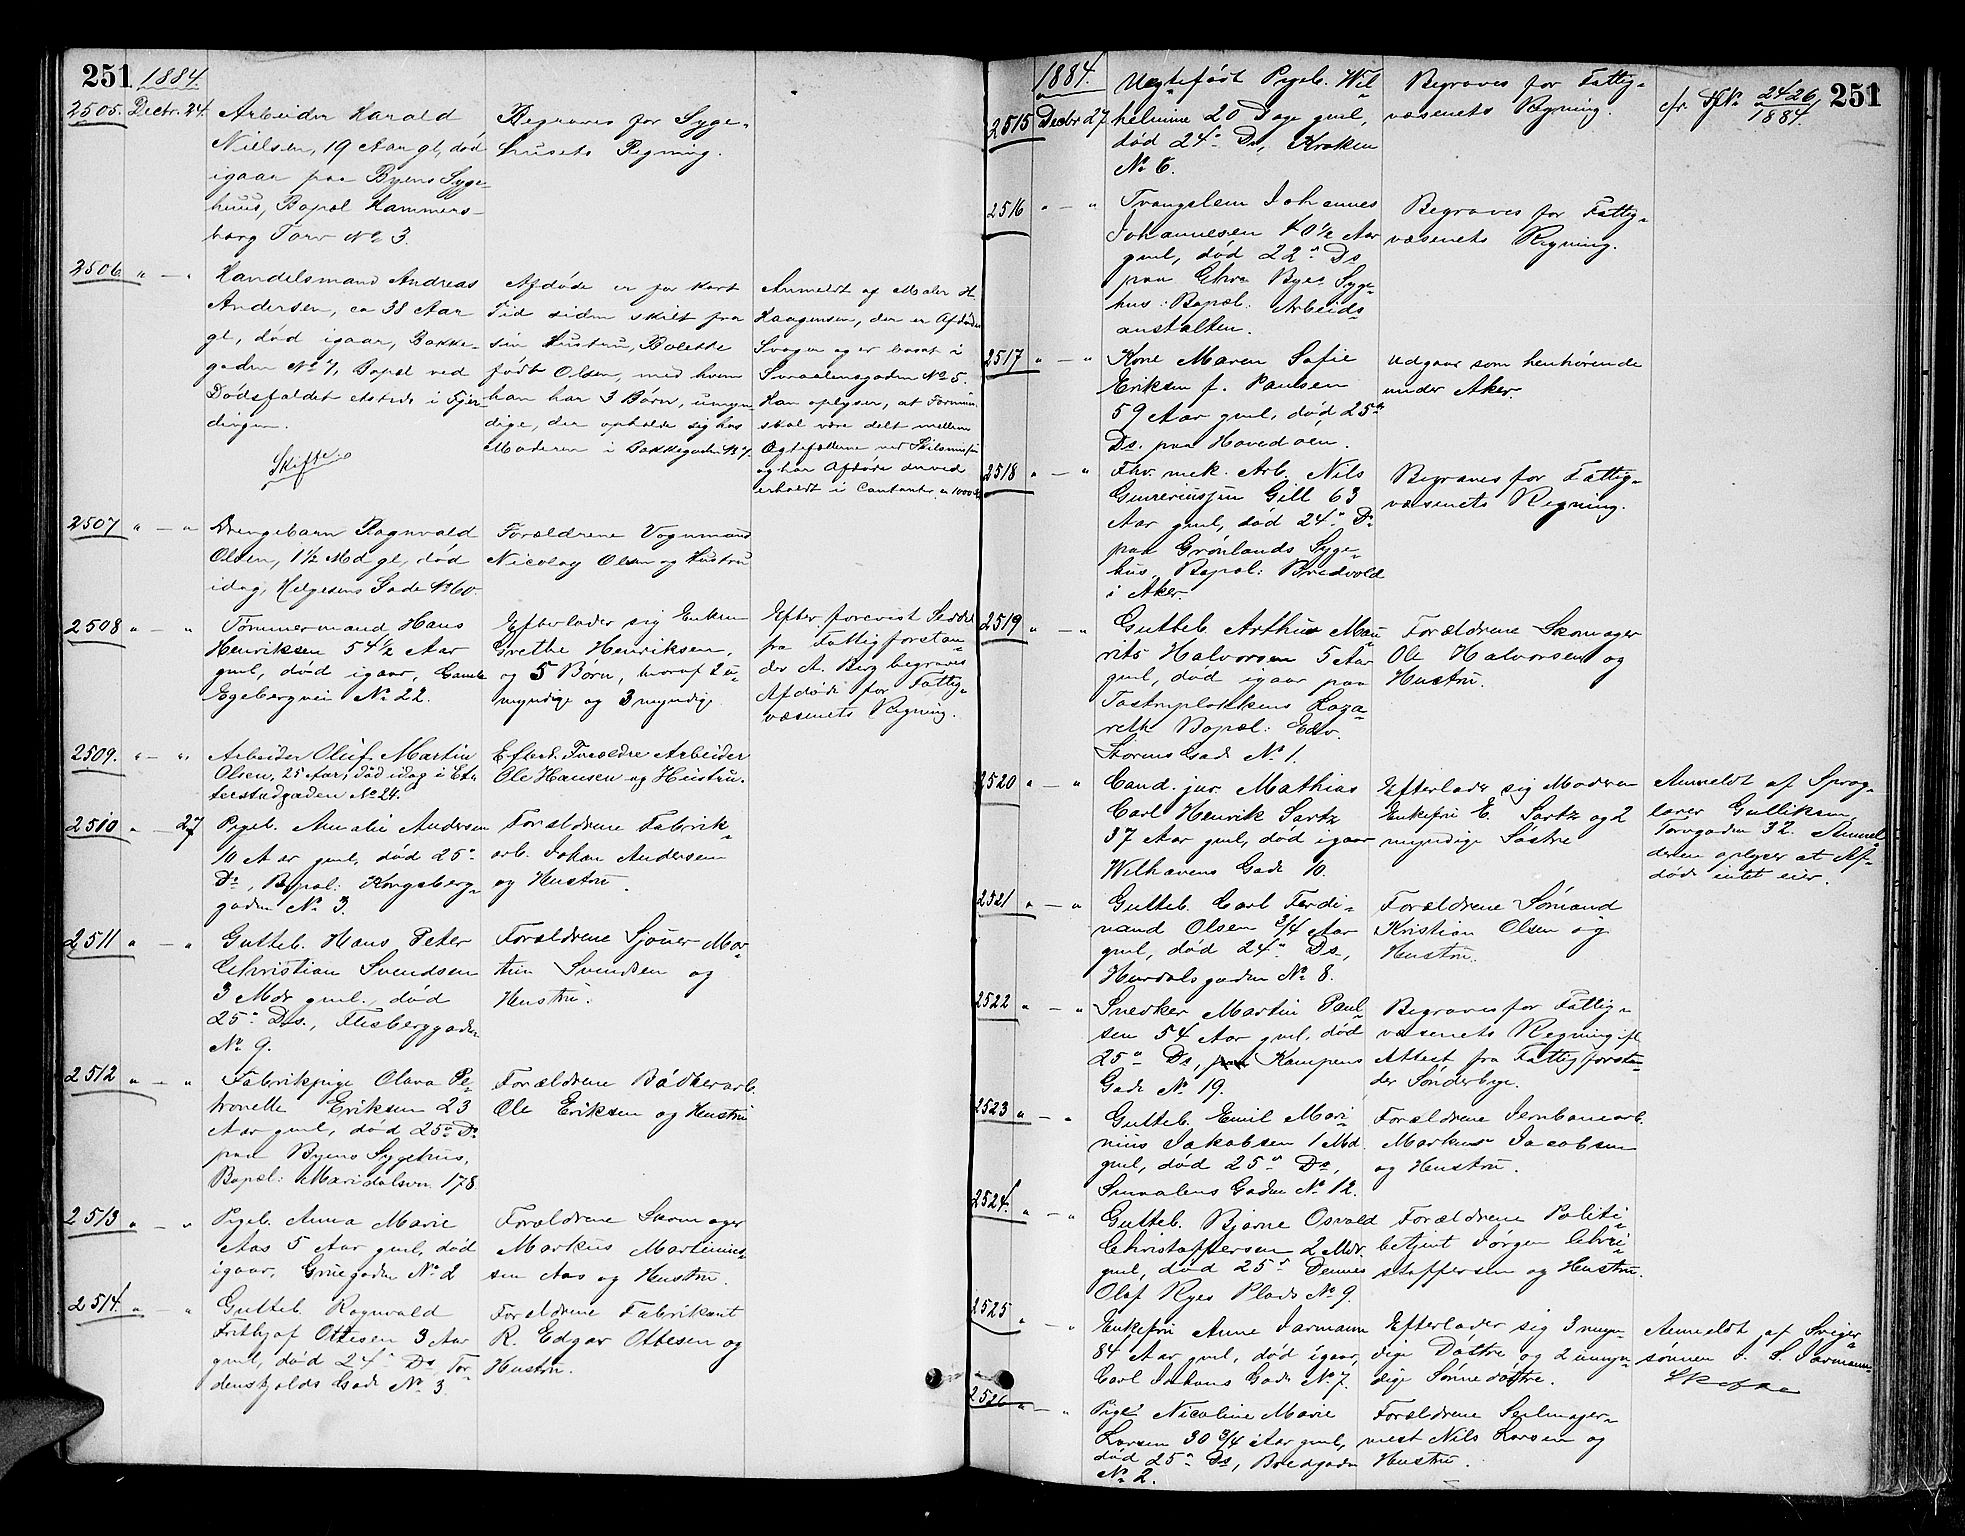 251 1884.
2505. Decbr. 24.
Arbeider Harald
Nielsen, 19 Aar gl, død
igaar paa Byens Syge-
huus, Bopæl Hammers-
borg Torv No 3.
Begraves for Syge-
husets Regning.
2506. " — "
Handelsmand Andreas
Andersen, ca 38 Aar
gl, død igaar, Bakke-
gaden No 7, Bopæl ved
Dødsfaldet etsteds i Fjer-
dingen.
Skifte.
Afdøde er for kort
Tid siden skilt fra
sin Hustru, Bolette
født Olsen, med hvem
han har 3 Børn, umyn-
dige, der opholde sig hos
Moderen i Bakkegaden No 7.
Anmeldt af Maler H.
Haagensen, der er Afdødes
Svoger og er bosat i
Smaalensgaden No 5.
Han oplyser, at Formuen
skal være delt mellem
Ægtefællerne ved Skilsmissen
og har Afdøde derved
erholdt i Contanter ca 1000 Kr
2507 " — "
Drengebarn Ragnvald
Olsen, 1½ Md gl, død
idag, Helgesens Gade No 60.
Forældrene Vognmand
Nicolay Olsen og Hustru
2508 " — "
Tømmermand Hans
Henriksen 54½ Aar
gml, død igaar, Gamle
Egebergvei No 22.
Efterlader sig Enken
Grethe Henriksen,
og 5 Børn, hvoraf 2 u-
myndige og 3 myndige.
Efter forevist Seddel
fra Fattigforstan-
der A. Berg begraves
Afdøde for Fattig-
væsenets Regning.
2509. " — "
Arbeider Oluf Martin
Olsen, 25 Aar, død idag i Ef-
terstadgaden No 24.
Efterl. Forældre Arbeider
Ole Hansen og Hustru.
2510 " — 27
Pigeb. Amalie Andersen
10 Aar gml, død 25de
Ds, Bopæl: Kongsberg-
gaden No 3.
Forældrene Fabrik-
arb. Johan Andersen
og Hustru.
2511 " — "
Gutteb. Hans Peter
Christian Svendsen
3 Mdr gml., død
25de Ds., Flesberggaden
No 9.
Forældrene Sjouer Mar-
tin Svendsen og
Hustru.
2512 " — "
Fabrikpige Olava Pe-
tronelle Eriksen 23
Aar gml, død 25de Ds
paa Byens Sygehus,
Bopæl: Maridalsvn. 178.
Forældrene Bødkerarb.
Ole Eriksen og Hustru
2513 " — "
Pigeb. Anna Marie
Aas 5 Aar gml, død
igaar, Gruegaden No 2
Forældrene Skomager
Markus Martinius-
sen Aas og Hustru.
2514. " — "
Gutteb. Ragnvald
Frithjof Ottesen 3 Aar
gml, død 24de Ds Tor-
denskjolds Gade No 3
Forældrene Fabrikant
R. Edgar Ottesen og
Hustru.
1884. 251
2515 Decbr 27
Uægteført Pigeb. Wil-
helmine 20 Dage gml,
død 24de Ds, Kroken
No 6.
Begraves for Fattig-
væsenets Regning.
cfr. Df No 2426/1884.
2516 " — "
Tvangslem Johannes
Johannesen 40½ Aar
gml, død 22de Ds
paa Chra Byes Syge-
hus: Bopæl: Arbeids-
anstalten.
Begraves for Fattig-
væsenets Regning.
2517 " — "
Kone Maren Sofie
Eriksen f. Paulsen
59 Aar gml, død 25de
Ds. paa Hovedøen.
Udgaar som henhørende
under Aker.
2518 " — "
Fhv. mek. Arb. Nils
Gill 63
Aar gml, død 24de Ds
paa Grønlands Syge-
hus, Bopæl: Bredvold
i Aker.
Begraves for Fattig-
væsenets Regning.
2519 " — "
Gutteb. Arthur Mau-
rits Halvorsen 5 Aar
gml, død igaar paa
Tostrupløkkens Laza-
reth Bopæl: Edv.
Storms Gade No 1.
Forældrene Skomager
Ole Halvorsen og
Hustru.
2520 " — "
Cand. jur. Mathias
Carl Henrik Sartz
37 Aar gml, død igaar
Welhavens Gade 10.
Efterlader sig Moderen
Enkefru E. Sartz og 2
myndige Søstre
Anmeldt af Sprog-
lærer Gulliksen
Torvgaden 32. Anmel-
deren oplyser at Af-
døde intet eier.
2521 " — "
Gutteb. Carl Ferdi-
nand Olsen ¾ Aar
gml, død 24de Ds,
Hurdalsgaden No 8.
Forældrene Sømand
Kristian Olsen og
Hustru.
2522 " — "
Snedker Martin Paul-
sen 54 Aar gml, død
25de Ds, paa Kampens
Gade No 19.
Begraves for Fattig-
væsenets Regning ifl
Attest fra Fattigforstan-
der Sønderbye.
2523 " — "
Gutteb. Emil Mari-
nius Jakobsen 1 Md.
gml, død 25de Ds,
Smaalens Gaden No 12.
Forældrene Jernbanearb.
Markus Jacobsen
og Hustru.
2524. " — "
Gutteb. Bjarne Osvald
Christoffersen 2 Mdr.
gml, død 25de Dennes
Olaf Ryes Plads No 9.
Forældrene Politi-
betjent Jørgen Chri-
stoffersen og Hustru.
2525 " — "
Enkefru Anne Jarmann
84 Aar gml, død igaar,
Carl Johans Gade No 7.
Efterlader sig 3 myn-
dige Døttre, og 2 umyn-
dige Sønnedøttre.
Anmeldt af Sviger-
sønnen J. S. Jarmann
Skifte
2526 " — "
Pige Nicoline Marie
Larsen 30¾ Aar gml,
død 25de Ds, Bredgaden
No 2.
Forældrene Seilmager-
mest Nils Larsen og
Hustru.